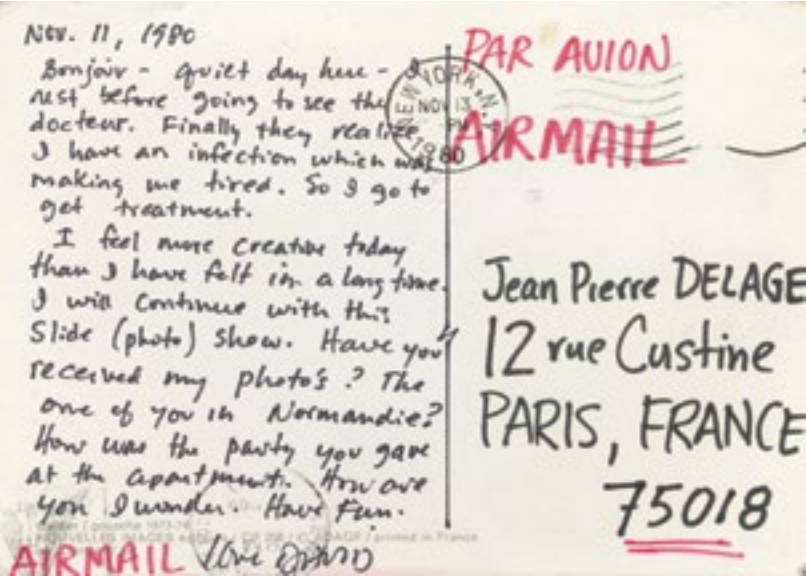 Nov. 11, 1980
Bonjour - quiet day here - I
rest before going to see the
docteur. Finally they realize
I have an infection which was
making me tired. So I go to
get treatment.
I feel more creative today
than I have felt in a long time.
I will continue with this
Slide (photo) show. Have you
received my photo's? The
one of you in Normandie?
How was the party you gave
at the apartment. How are
you I wonder. Have Fun.
Love David
AIRMAIL
PAR AVION
AIRMAIL
NEW YORK, N.
NOV 13
PM
1980
Jean Pierre DELAGE
12 rue Custine
PARIS, FRANCE
75018
NOUVELLES IMAGES
printed in France